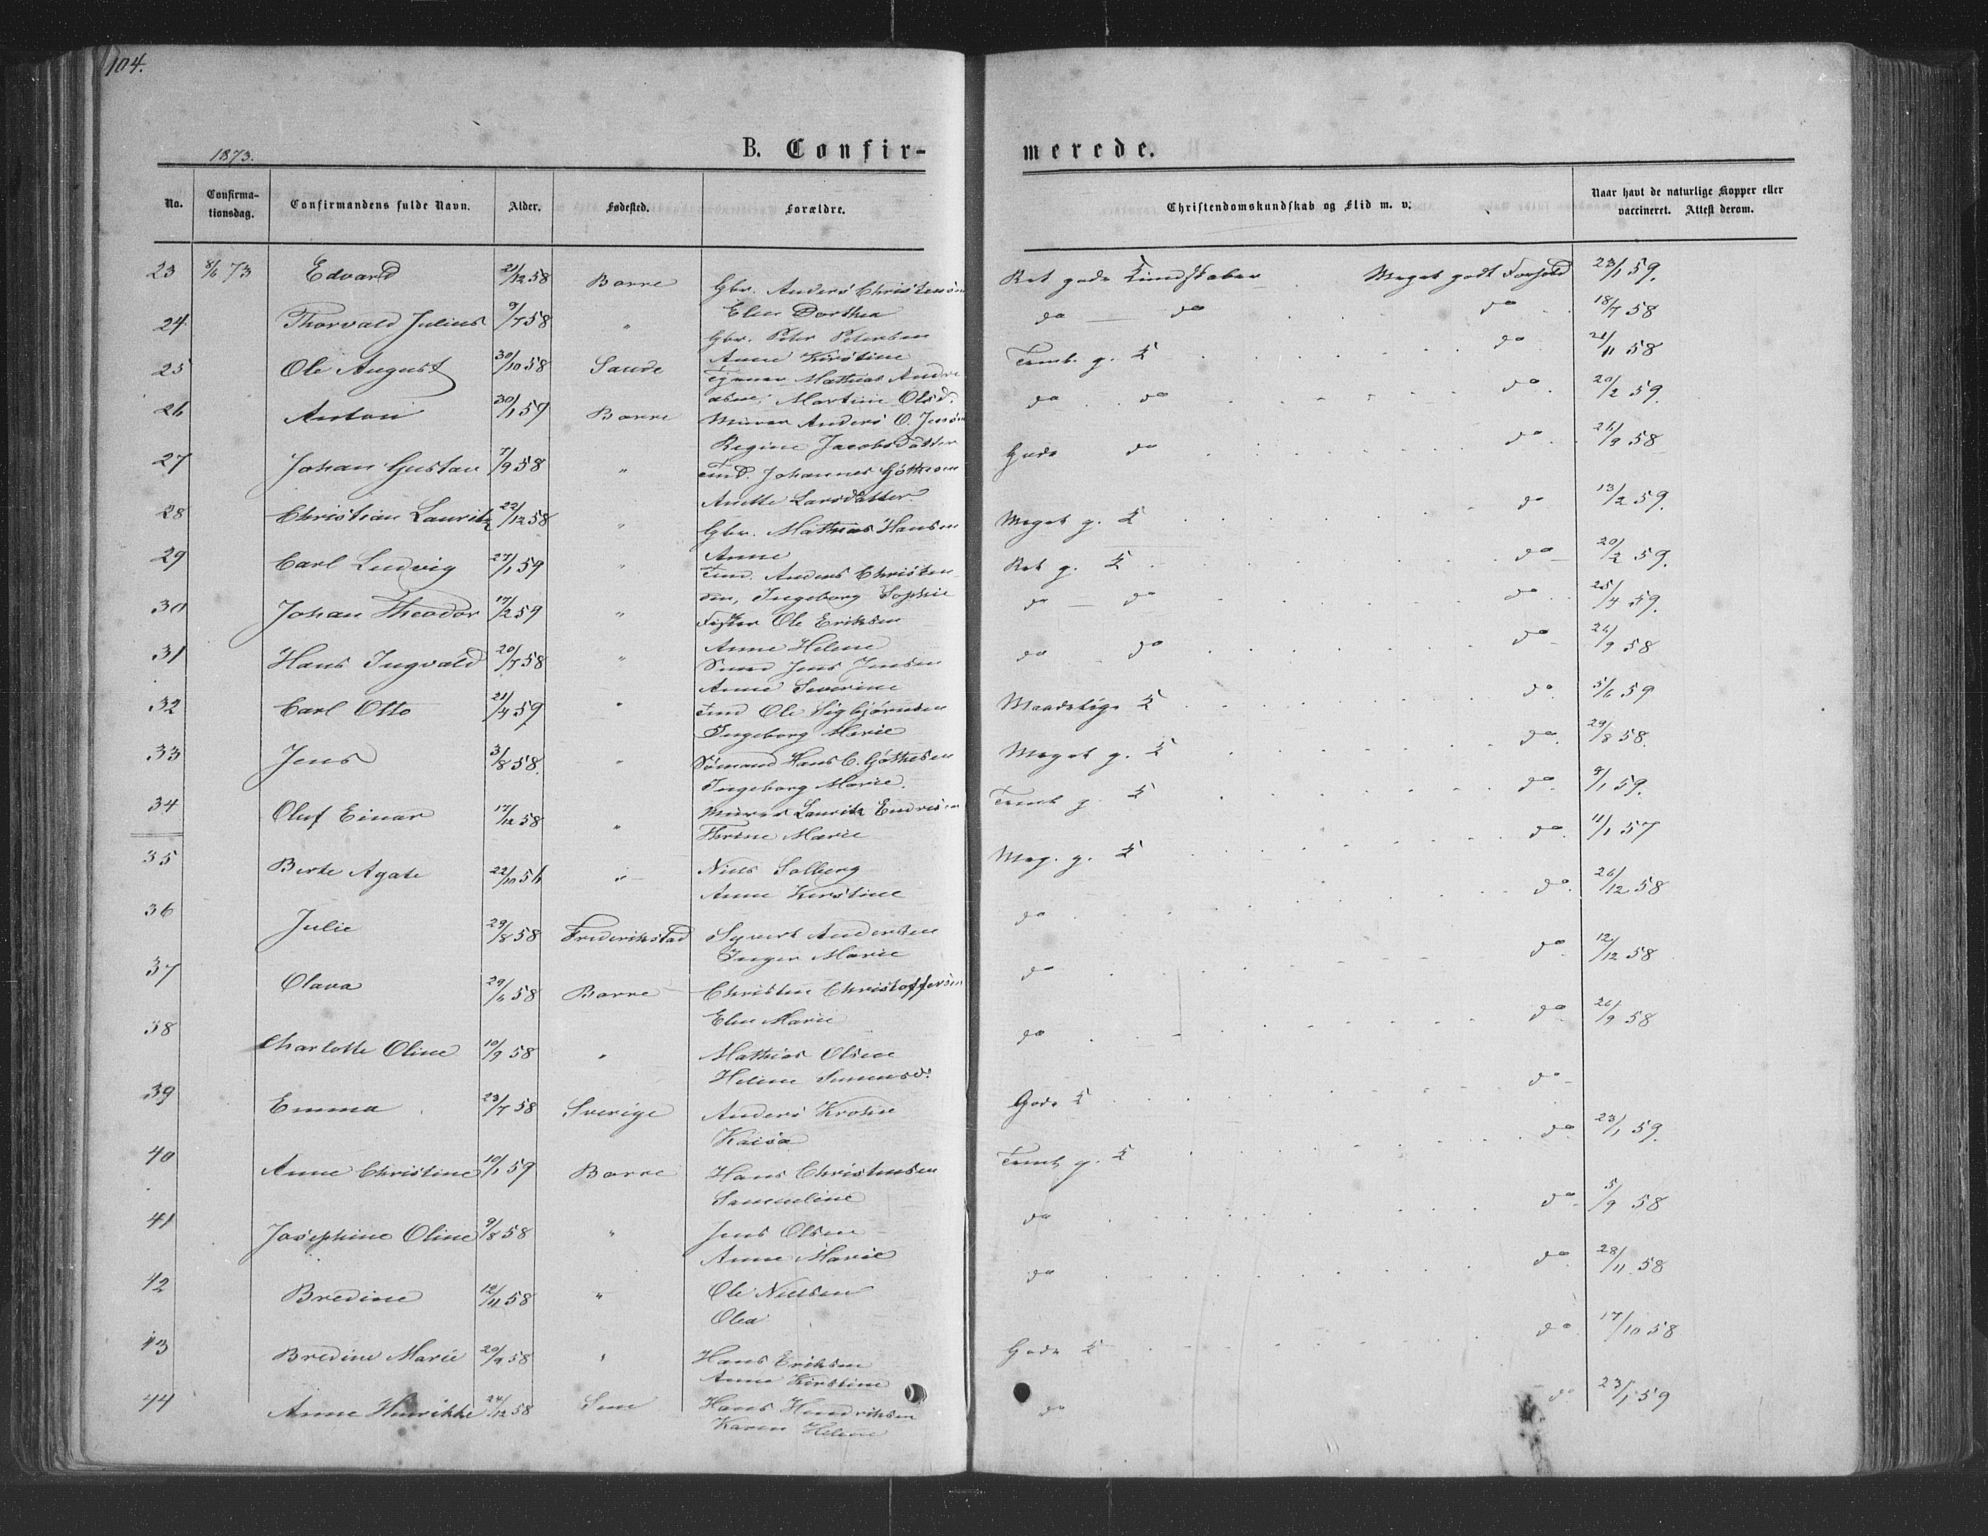 104.
1873.
B. Confir- merede.
No. Confirma- tionsdag. Confirmandens fulde Navn. Alder. Fødested. Forældre. Christendomskundskab og Flid m. v. Naar havt de naturlige Kopper eller vaccineret. Attest derom.
23 8/6 73 Edvard 21/12 58 Borre Gbr. Anders Christensøn Ret gode Kundskaber Meget godt Forhold 23/1 59.
Elen Dorthea
24 Thorvald Julius 9/7 58 " Gbr. Peter Petersen do do do 18/7 58
Anne Kirstine
25 Ole August 30/10 58 Sande Mathias Andre Temb. g. K do 21/11 58
asen, Martine Olsd.
26 Anton 30/1 59 Borre Murer Anders O. Jensøn do do do 20/2 59.
Regine Jacobsdatter
27 Johan Gustav 7/9 58 " Tmd. Johannes Gøthesen Gode do do 26/9 58
Anette Larsdatter
28 Christian Lauritz 22/12 58 " Gbr. Mathias Hansen Meget g. K do 13/2 59.
Anne
29 Carl Ludvig 27/1 59 " Tmd. Anders Christen Ret g. K do 20/2 59.
sen, Ingeborg Sophie
30 Johan Theodor 17/2 59 " Ole Eriksen do do do 25/4 59.
Anne Helene
31 Hans Ingvald 20/7 58 " Smed Jens Jensen do do do 26/9 58
Anne Severine
32 Carl Otto 21/4 59 " Tmd Ole Sigbjørnsen Maadelige K do. 5/6 59
Ingeborg Marie
33 Jens 3/8 58. " Sømand Hans C. Gøthesen Meget g. K do. 29/8 58.
Ingeborg Marie.
34 Oluf Einar 17/12 58 " Murer Lauritz Endresen Temb g. K do. 9/1 59.
Therine Marie
35 Berte Agate 22/10 56 " Niels Solberg Meg. g. K do. 11/1 57
Anne Kirstine
36 Julie 29/8 58 Frederikstad Syvert Andersen do do. 26/12 58
Inger Marie
37 Olava 29/6 58 Borre Christen Christoffersen do do. 12/12 58
Elen Marie
38 Charlotte Oline 10/9 58 " Mathias Olsen do do 26/9 58
Helene
39 Emma 23/7 58 Sverige Anders Gode K do
Kaisa
40 Anne Christine 10/1 59 Borre Hans Christensen Temb g. K do 23/1 59.
Samueline
41 Josephine Oline 9/8 58 " Jens Olsen do do 5/9 58
Anne Marie
42 Bredine 12/11 58 " Ole Nielsen do do. 28/11 58
Olea
43 Bredine Marie 20/9 58 " Hans Eriksen Gode K do 17/10 58
Anne Kirstine
44 Anne Henrikke 24/12 58 Sem Hans Hendriksen do do 23/1 59
Karen Helene